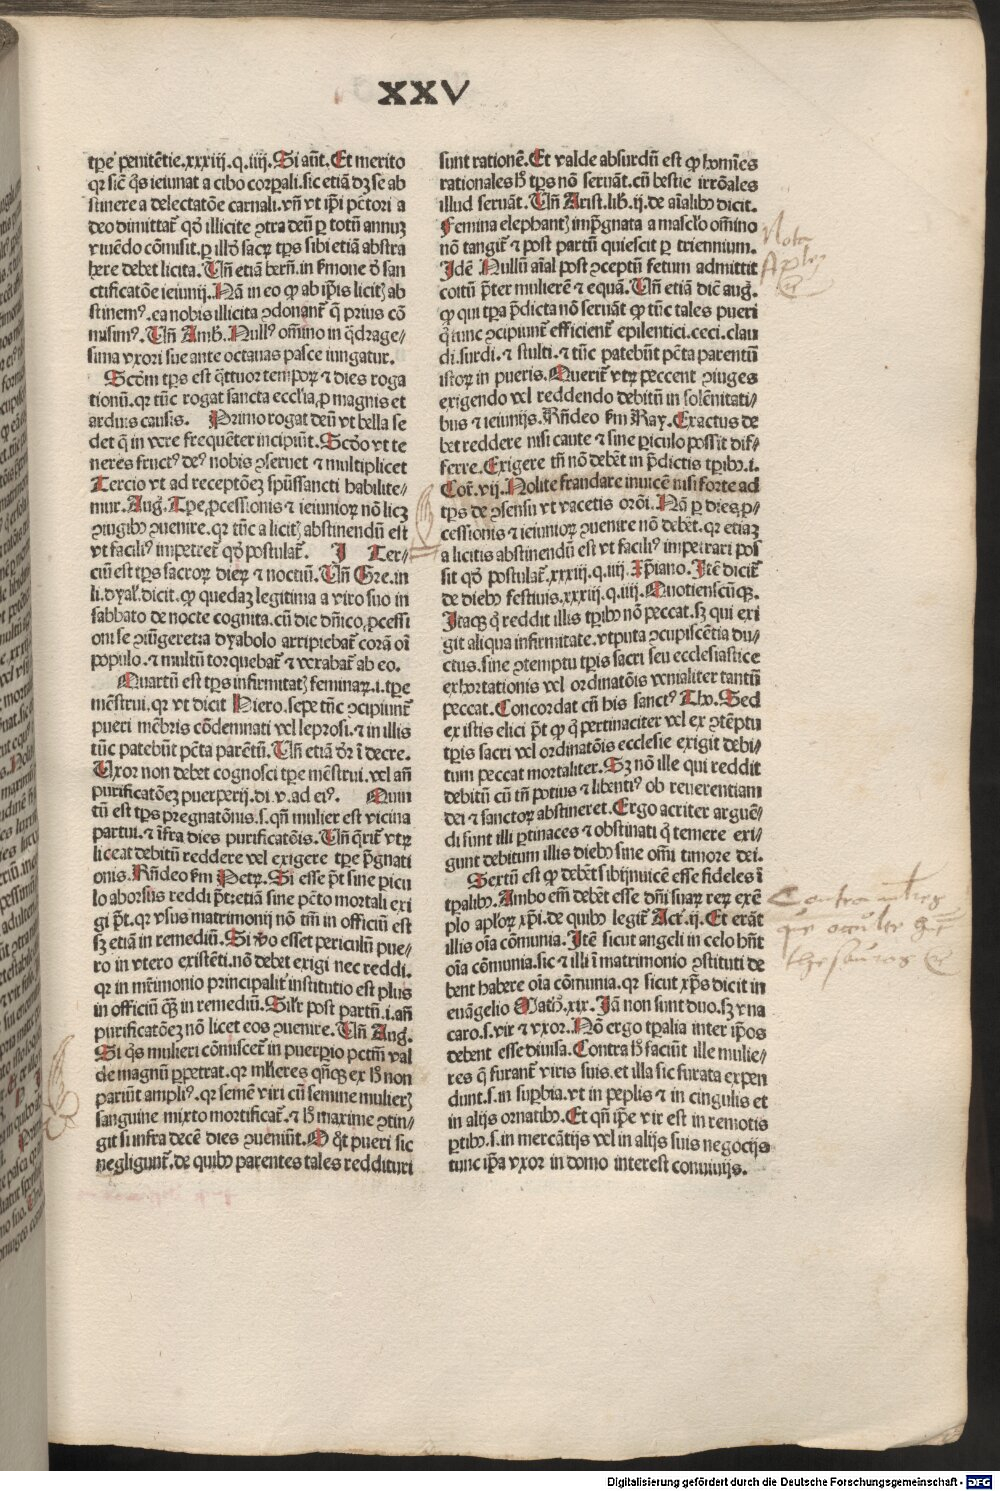 XXV
tp̄e penitētie.xxxiij.q.iiij.Si aūt.Et merito
qꝛ sic̄ q̄s ieiunat a cibo corꝑali.sic etiā dꝫ se ab
stinere a delectatōe carnali.vn̄ vt ip̄i pc̄tori a
deo dimittat᷑ qd̓ illicite ꝯtra deū ꝑ totū annuꝫ
viuēdo cōmisit.ꝑ illd̓ sacꝝ tp̄s sibi etiā abstra
here debet licita.Un̄ etiā bern̄.in ẜmone d̓ san
ctificatōe ieiunij.Nā in eo ꝙ ab ip̄is licitꝭ ab
stinemꝰ.ea nobis illicita ꝯdonant᷑ q̄ prius cō
misimꝰ.Un̄ Amb.Nullꝰ om̄ino in q̄drage⸗
sima vxori sue ante octauas pasce iungatur.
Scd̓m tp̄s est q̄ttuor tempoꝝ ⁊ dies roga
tionū.qꝛ tūc rogat sancta eccl̓ia ꝓ magnis et
arduis causis. Primo rogat deū vt bella se
det q̄ in vere frequēter incipiūt.Scd̓o vt te
neres fructꝰ deꝰ nobis ꝯseruet ⁊ multiplicet
Tercio vt ad receptōeꝫ spūssancti habilite⸗
mur.Aug.Tp̄e ꝓcessionis ⁊ ieiunioꝝ nō licꝫ
ꝯiugibꝰ ꝯuenire.qꝛ tūc a licitꝭ abstinendū est
vt faciliꝰ impetret᷑ qd̓ postulat᷑. I Ter⸗
ciū est tp̄s sacroꝝ dieꝝ ⁊ noctiū.Un̄ Gre.in
li.dyal̓.dicit.ꝙ quedaꝫ legitima a viro suo in
sabbato de nocte cognita.cū die dn̄ico ꝓcessi
oni se ꝯiūgeret:a dyabolo arripiebat᷑ corā oī
populo.⁊ multū torquebat᷑ ⁊ vexabat᷑ ab eo.
Quartū est tp̄s infirmitatꝭ feminaꝝ.i.tp̄e
mēstrui.qꝛ vt dicit Hiero.sepe tūc ꝯcipiunt᷑
pueri mēbris cōdemnati vel leprosi.⁊ in illis
tūc patebūt pc̄ta parētū.Un̄ etiā dr̄ ī decre.
Uxor non debet cognosci tp̄e mēstrui.vel an̄
purificatōeꝫ puerperij.di.v.ad eiꝰ. Quin
tū est tp̄s pregnatōnis.s.qn̄ mulier est vicina
partui.⁊ īfra dies purificatōis.Un̄ q̄rit᷑ vtꝝ
liceat debitū reddere vel exigere tp̄e p̄gnati
onis.Rn̄deo ẜm Petꝝ.Si esse p̄t sine picu
lo aborsus reddi p̄t:etiā sine pc̄to mortali exi
gi p̄t.qꝛ vsus matrimonij nō tm̄ in officiū est
sꝫ etiā in remediū.Si v̓o esset periculū pue⸗
ro in vtero existēti.nō debet exigi nec reddi.
qꝛ in mr̄imonio principalit᷑ institutio est plus
in officiū q̄ꝫ in remediū.Sil̓r post partū.i.an̄
purificatōeꝫ nō licet eos ꝯuenire.Un̄ Aug.
Si q̄s mulieri cōmiscet᷑ in puerꝑio pctm̄ val
de magnū ꝑpetrat.qꝛ ml̓ieres qn̄qꝫ ex hͦ non
pariūt ampliꝰ.qꝛ semē viri cū semine mulierꝭ
sanguine mixto mortificat᷑.⁊ hͦ maxime ꝯtin⸗
git si infra decē dies ꝯueniūt.O qt̓ pueri sic
negligunt᷑.de quibꝰ parentes tales reddituri
sunt rationē.Et valde absurdū est ꝙ homīes
rationales hͦ tp̄s nō seruāt.cū bestie irrōales
illud seruāt.Un̄ Arist.lib.ij.de aīalibꝰ dicit.
Femina elephantꝭ imp̄gnata a mascl̓o om̄ino
nō tangit᷑ ⁊ post partū quiescit ꝑ triennium.
Idē Nullū aīal post ꝯceptū fetum admittit
coitū p̄ter mulierē ⁊ equā.Un̄ etiā dic̄ aug.
ꝙ qui tp̄a p̄dicta nō seruāt ꝙ tūc tales pueri
q̄ tunc ꝯcipiunt᷑ efficient᷑ epilentici.ceci.clau
di.surdi.⁊ stulti.⁊ tūc patebūt pc̄ta parentū
istoꝝ in pueris.Querit᷑ vtꝝ peccent ꝯiuges
exigendo vel reddendo debitū in solēnitati⸗
bus ⁊ ieiunijs.Rn̄deo ẜm Ray.Exactus de
bet reddere nisi caute ⁊ sine piculo possit dif⸗
ferre.Exigere tn̄ nō debēt in p̄dictis tp̄ibꝰ.i.
Cor̄.vij.Nolite fraudare inuicē nisi forte ad
tp̄s de ꝯsensu vt vacetis or̄oni.Nā ꝑ dies ꝓ⸗
cessionis ⁊ ieiunioꝝ ꝯuenire nō debet.qꝛ etiaꝫ
a licitis abstinendū est vt faciliꝰ impetrari pos
sit qd̓ postulat᷑.xxxiij.q.iiij.Xp̄iano.Itē dicit᷑
de diebꝰ festiuis.xxxiij.q.iiij.Quotienscūqꝫ.
Itaqꝫ q̄ reddit illis tp̄ibꝰ nō peccat.sꝫ qui exi
git aliqua infirmitate.vtputa ꝯcupiscētia du⸗
ctus.sine ꝯtemptu tp̄is sacri seu ecclesiastice
exhortationis vel ordinatōis venialiter tantū
peccat.Concordat cū his sanctꝰ Tho.Sed
ex istis elici p̄t ꝙ q̄ pertinaciter vel ex ꝯtēptu
tp̄is sacri vel ordinatōis ecclesie exigit debi⸗
tum peccat mortaliter.Sꝫ nō ille qui reddit
debitū cū tn̄ potius ⁊ libentiꝰ ob reuerentiam
dei ⁊ sanctoꝝ abstineret.Ergo acriter arguē⸗
di sunt illi ꝑtinaces ⁊ obstinati q̄ temere exi⸗
gunt debitum illis diebꝰ sine om̄i timore dei.
Sextū est ꝙ debēt sibijnuicē esse fideles ī
tp̄alibꝰ.Ambo em̄ debēt esse dn̄i suaꝝ reꝝ exē
plo apl̓oꝝ xp̄i.de quibꝰ legit᷑ Act̓.ij.Et erāt
illis oīa cōmunia.Itē sicut angeli in celo hn̄t
oīa cōmunia.sic ⁊ illi ī matrimonio ꝯstituti de
bent habere oīa cōmunia.qꝛ sicut xp̄s dicit in
euāgelio Math̓.xix.Iā non sunt duo.sꝫ vna
caro.s.vir ⁊ vxor.Nō ergo tp̄alia inter ip̄os
debent esse diuisa.Contra hͦ faciūt ille mulie⸗
res q̄ furant᷑ viris suis.et illa sic furata expen
dunt.s.in suꝑbia.vt in peplis ⁊ in cingulis et
in alijs ornatibꝰ.Et qn̄ ip̄e vir est in remotis
ꝑtibꝰ.s.in mercātijs vel in alijs suis negocijs
tunc ip̄a vxor in domo interest conuiuijs.
Nota
Contra
Digitalisierung gefördert durch die Deutsche Forschungsgemeinschaft - DFG